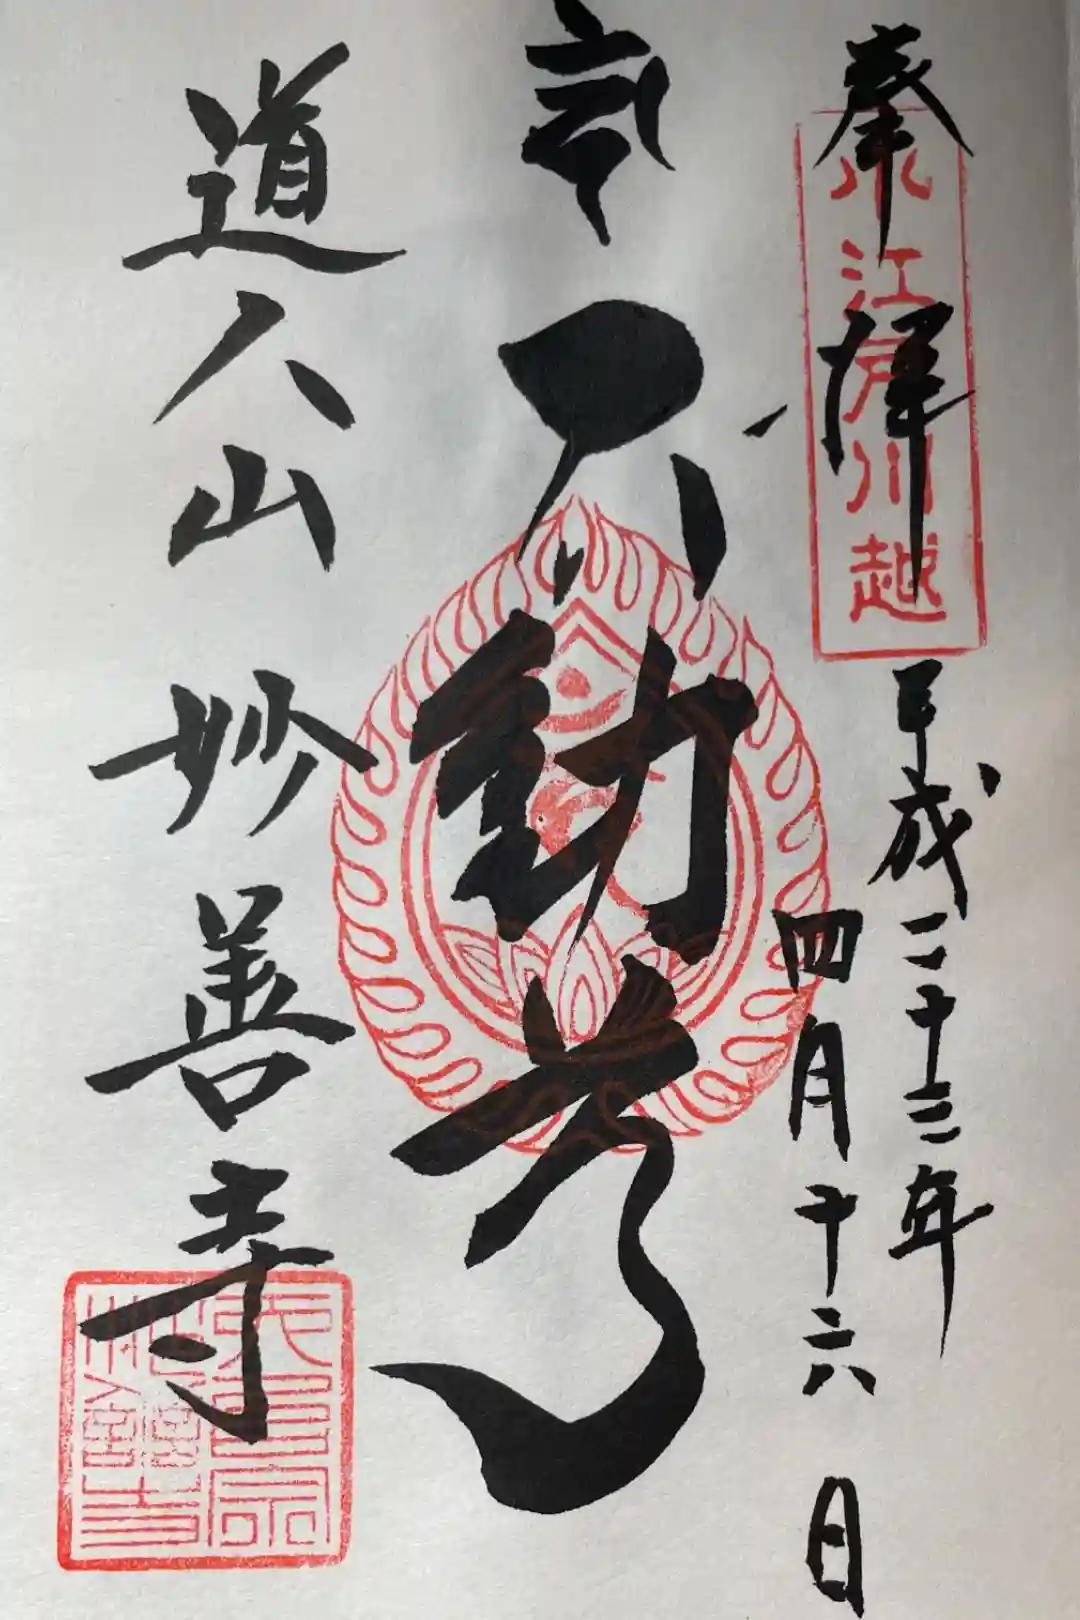 奉拝
小江戸川越
平成二十三年
四月十六日
不動尊
道人山 妙善寺